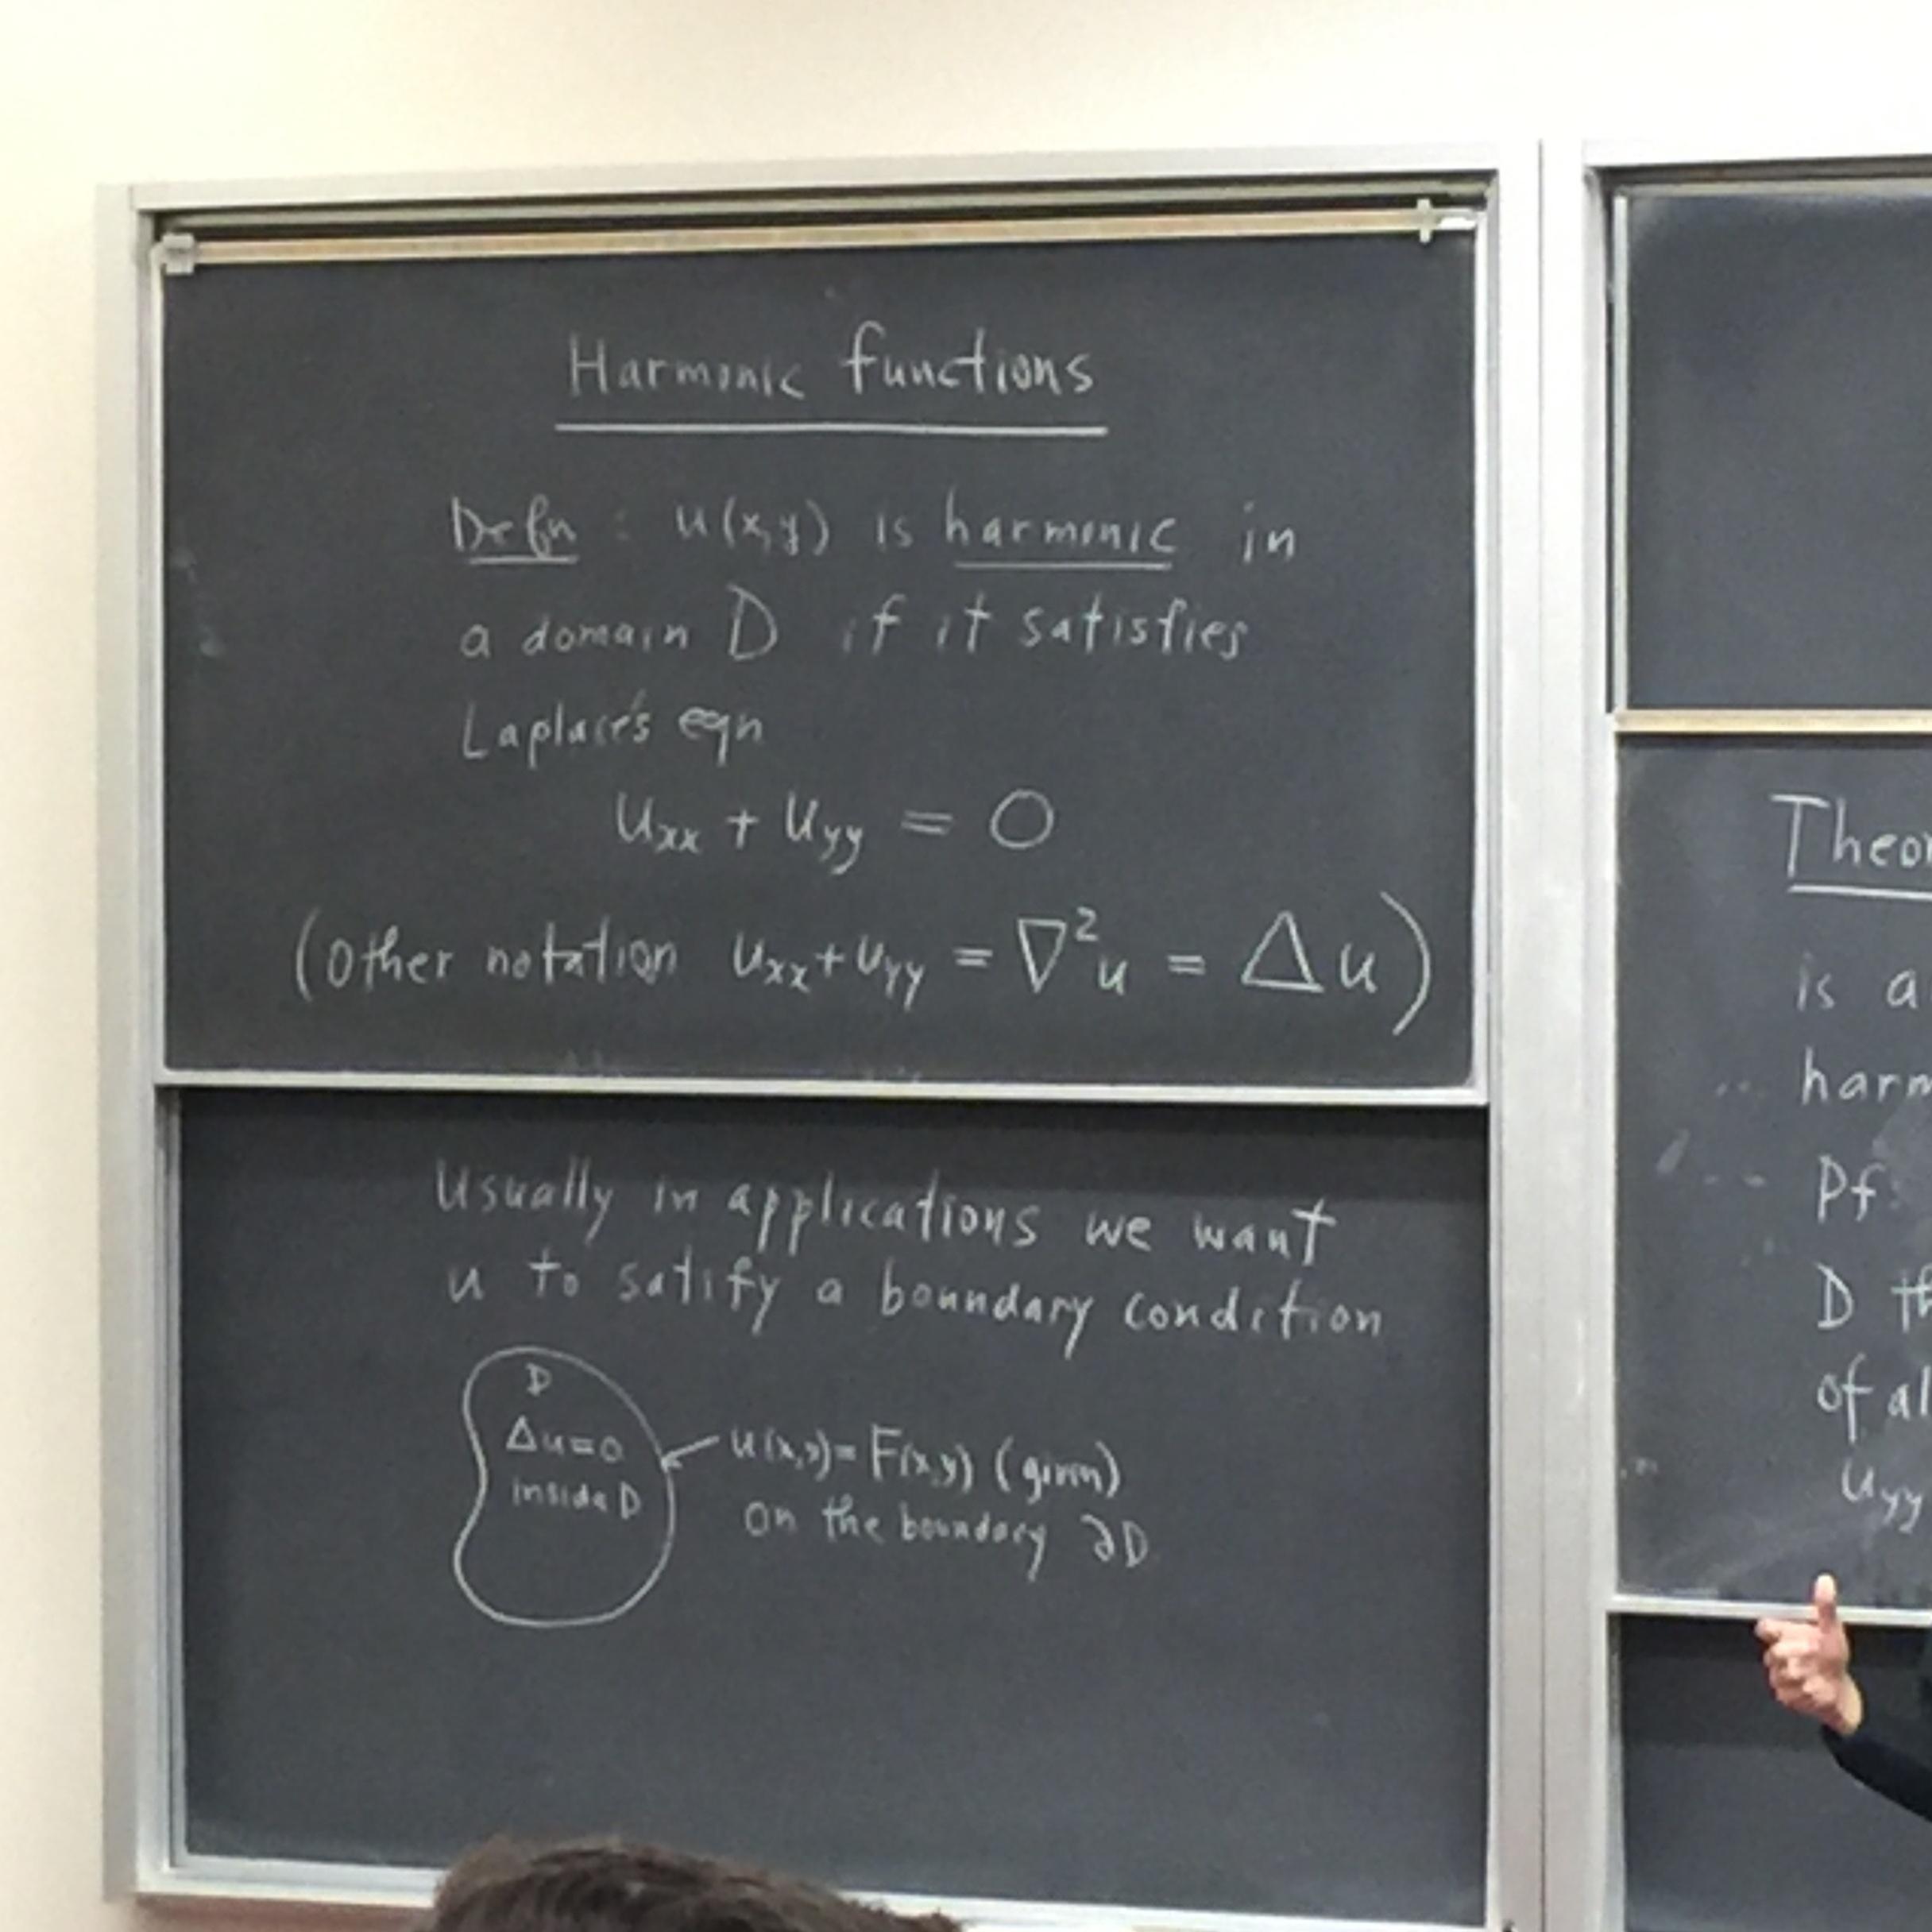 Harmonic functions
Defn : u(x,y) is harmonic in
a domain D if it satisfies
Laplace's eqn
u_xx + u_yy = 0
(Other notation u_xx + u_yy = ∇²u = Δu)
Usually in applications we want
u to satify a boundary condition
D
Δu=0
inside D
u(x,y)= F(x,y) (given)
on the boundary ∂D
Theor
is a
harm
Pf:
D th
of al
u_yy